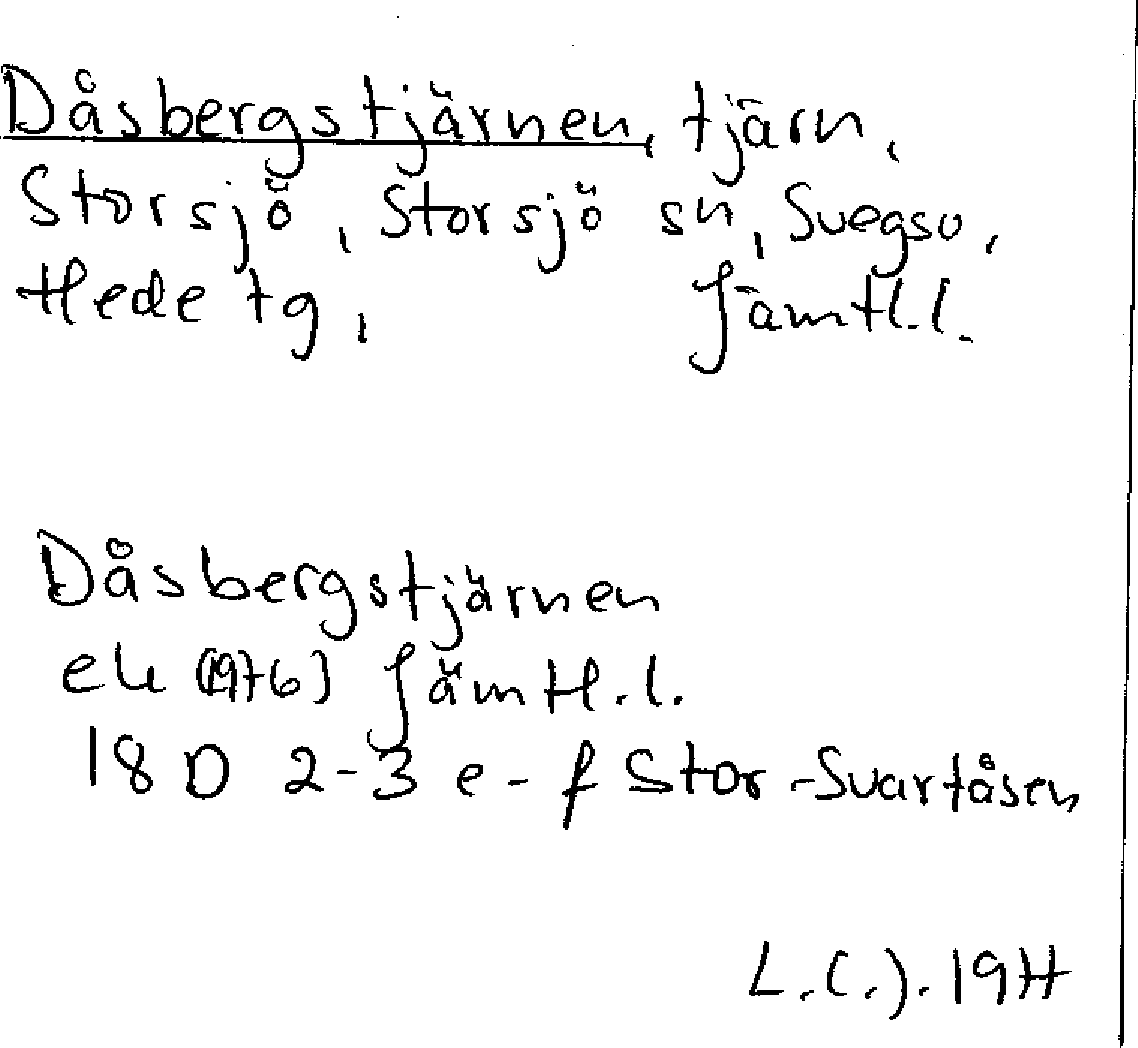 Dåsbergstjärnen, tjärn,
Storsjö, Storsjö sn, Svegso,
Hede tg, Jämtl.l.
Dåsbergstjärnen
ek (1976) Jämtl.l.
18 D 2-3 e-f Stor-Svartåsen
L.C.J. 1977